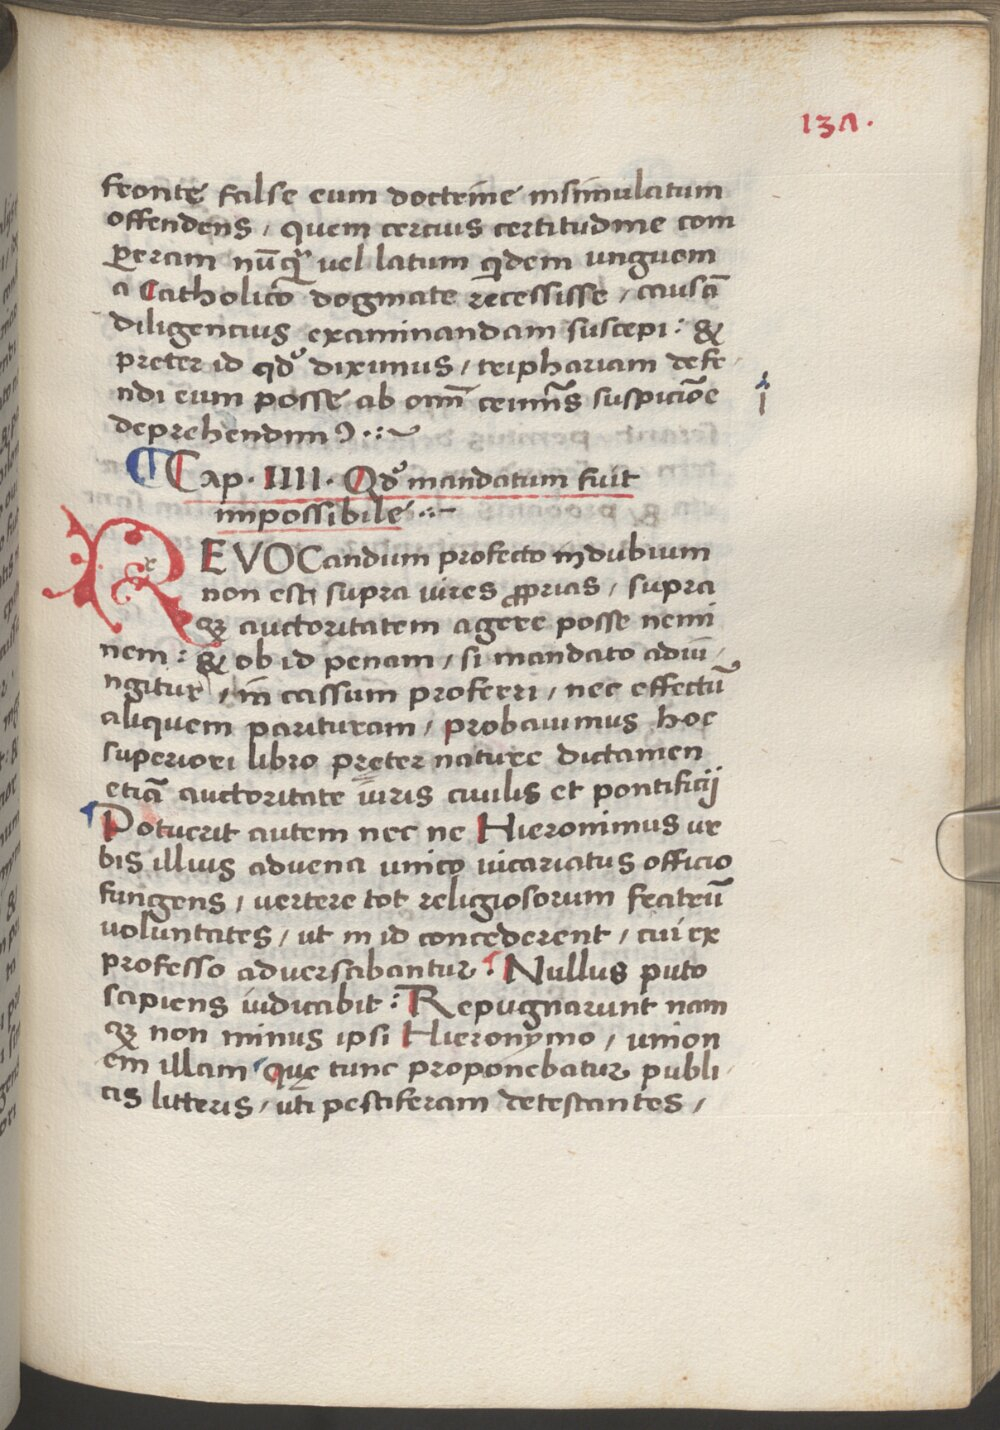 137.
fronte false eum doctrine insimulatum
offendens / quem cercius certitudine com
peram nūq̄ȝ vel latum q̇dem unguem
a Catholico dogmate recessisse / causā
diligencius examinandam suscepi : &
preter id qd̓ diximus / triphariam defe
ndi eum posse ab om̄i criminis suspicioē
deprehendim9 .: ~
Cap. IIII. Qd̓ mandatum fuit
impossibile .: -
REVOCandum profecto in dubium
non est supra vires ꝓprias / supra
qȝ auctoritatem agere posse nemi
nem : & ob id penam / si mandato adiu
ngitur / in cassum proferri / nec effectū
aliquem parituram / probavimus hoc
superiori libro preter nature dictamen
etiā auctoritate iuris civilis et pontificij
Potuerit autem nec ne Hieronimus ur
bis illius advena unico vicariatus officio
fungens / vertere tot religiosorum fratrū
voluntates / ut in id concederent / cui ex
professo adversabantur . Nullus puto
sapiens iudicabit : Repugnarunt nam
qȝ non minus ipsi Hieronymo / union
em illam que tunc proponebatur publi
cis litteris / uti pestiferam detestantes /